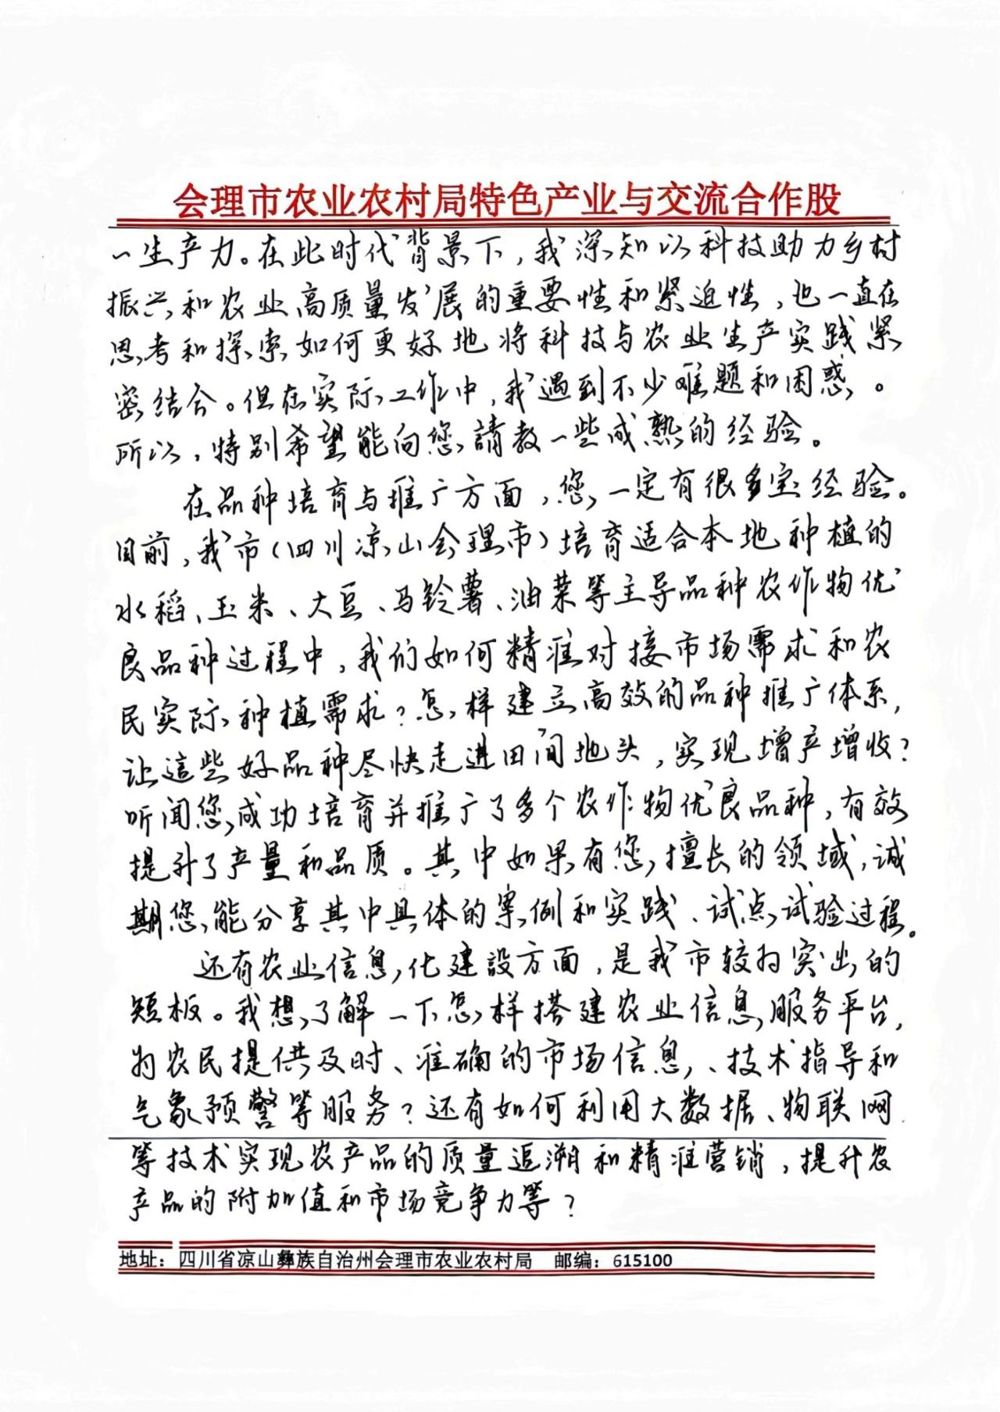 会理市农业农村局特色产业与交流合作股
一生产力。在此时代背景下，我深知以科技助力乡村
振兴和农业高质量发展的重要性和紧迫性，也一直在
思考和探索如何更好地将科技与农业生产实践紧
密结合。但在实际工作中，我遇到不少难题和困惑。
所以，特别希望能向您請教一些成熟的经验。
在品种培育与推广方面，您一定有很多宝经验。
目前，我市（四川凉山会理市）培育适合本地种植的
水稻、玉米、大豆、马铃薯、油菜等主导品种农作物优
良品种过程中，我们如何精准对接市场需求和农
民实际种植需求？怎样建立高效的品种推广体系，
让這些好品种尽快走进田间地头，实现增产增收？
听闻您成功培育并推广了多个农作物优良品种，有效
提升了产量和品质。其中如果有您擅长的领域，诚
期您能分享其中具体的案例和实践、试点试验过程。
还有农业信息化建設方面，是我市较为突出的
短板。我想了解一下怎样搭建农业信息服务平台，
为农民提供及时、准确的市场信息、技术指导和
气象预警等服务？还有如何利用大数据、物联网
等技术实现农产品的质量追溯和精准营销，提升农
产品的附加值和市场竞争力等？
地址：四川省凉山彝族自治州会理市农业农村局 邮编：615100